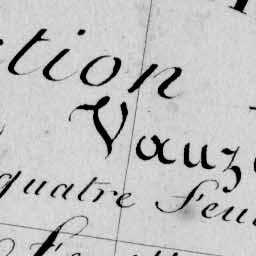 ction
Vauz
quatre Feui